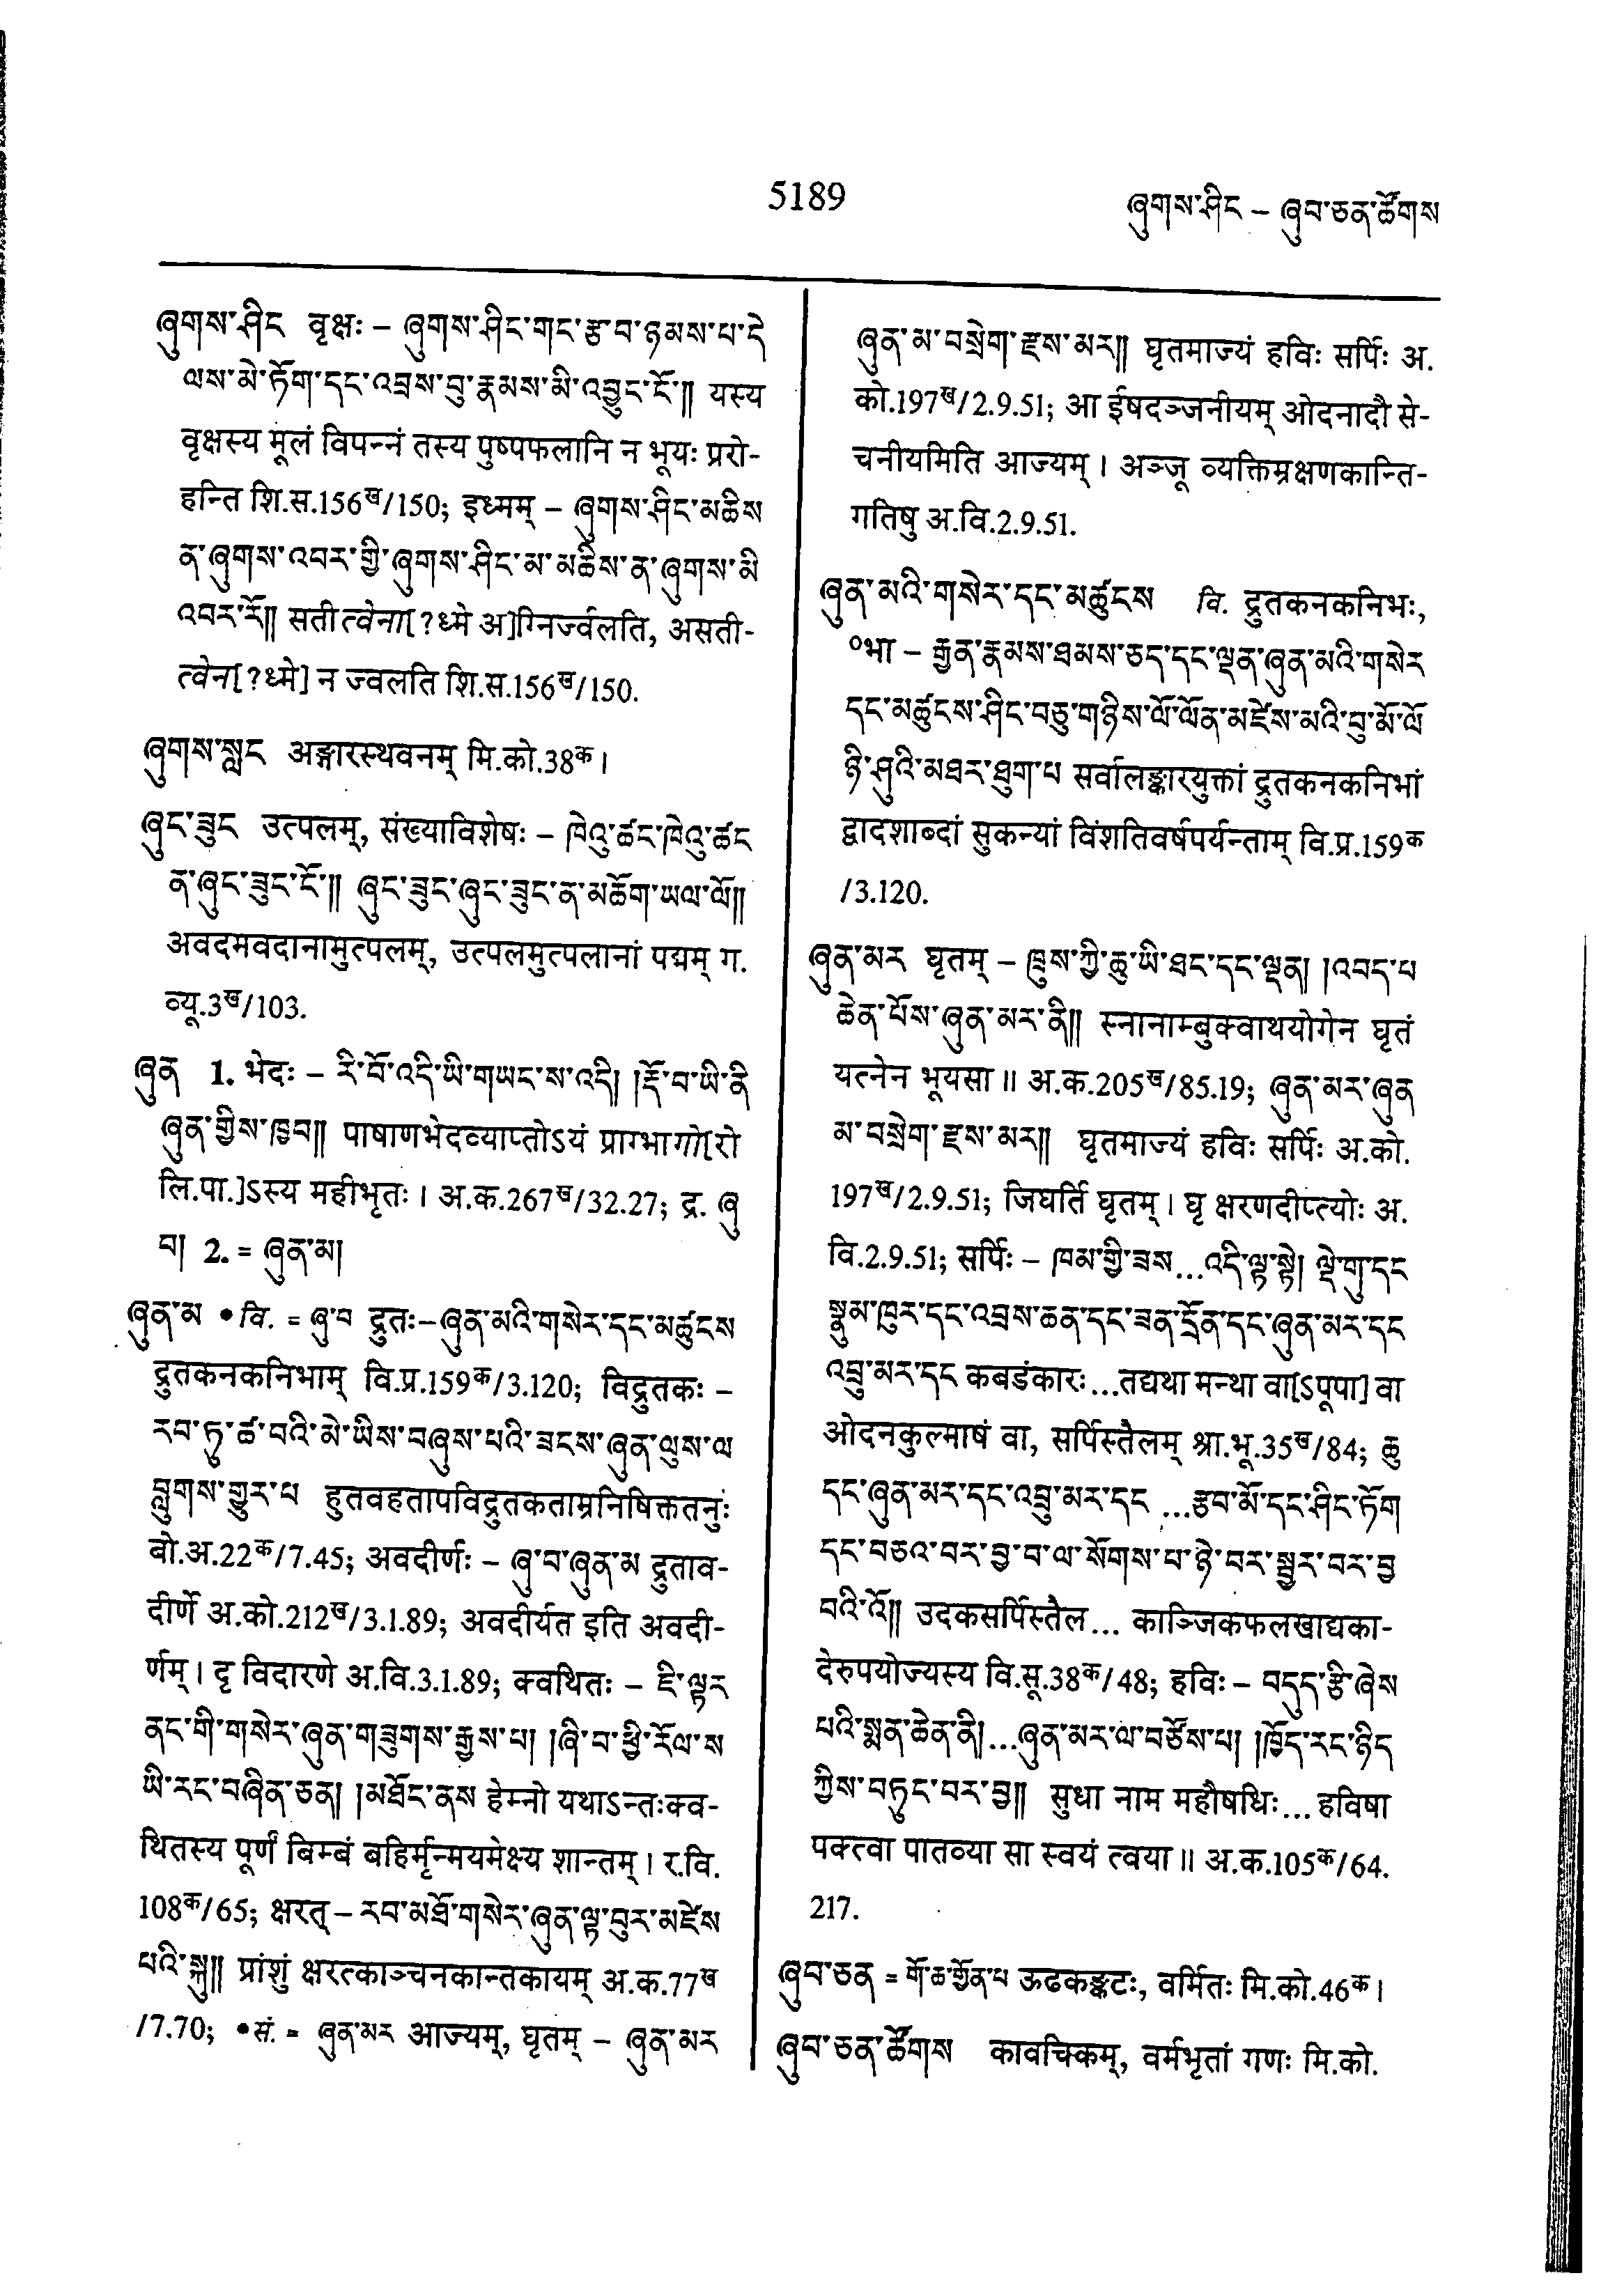 5189
ཞུགས་ཤིང – ཞུབ་ཅན་ཚོགས
ཞུགས་ཤིང वृक्षः – ཞུགས་ཤིང་གང་རྩ་བ་ཉམས་པ་དེ
ལས་མེ་ཏོག་དང་འབྲས་བུ་རྣམས་མི་འབྱུང་ངོ་༎ यस्य
वृक्षस्य मूलं विपन्नं तस्य पुष्पफलानि न भूयः प्ररो-
हन्ति शि.स.156ख/150; इध्मम् – ཞུགས་ཤིང་མཆིས
ན་ཞུགས་འབར་གྱི་ཞུགས་ཤིང་མ་མཆིས་ན་ཞུགས་མི
འབར་རོ༎ सतीत्वेना[?ध्मे अ]ग्निर्ज्वलति, असती-
त्वेन[?ध्मे] न ज्वलति शि.स.156ख/150.
ཞུགས་སླང अङ्गारस्थवनम् मि.को.38क।
ཞུང་ཟུང उत्पलम्, संख्याविशेषः – ཁེའུ་ཚང་ཁེའུ་ཚང
ན་ཞུང་ཟུང་ངོ་༎ ཞུང་ཟུང་ཞུང་ཟུང་ན་མཆོག་ཡལ་ལོ༎
अवदमवदानामुत्पलम्, उत्पलमुत्पलानां पद्मम् ग.
व्यू.3ख/103.
ཞུན 1. भेदः – རི་བོ་འདི་ཡི་གཡང་ས་འདི། །རྡོ་བ་ཡི་ནི
ཞུན་གྱིས་ཁྱབ༎ पाषाणभेदव्याप्तोऽयं प्राग्भागो[रो
लि.पा.]ऽस्य महीभृतः। अ.क.267ख/32.27; द्र. ཞུ
བ། 2. = ཞུན་མ།
ཞུན་མ •वि. = ཞུ་བ द्रुतः–ཞུན་མའི་གསེར་དང་མཚུངས
द्रुतकनकनिभाम् वि.प्र.159क/3.120; विद्रुतकः –
རབ་ཏུ་ཚ་བའི་མེ་ཡིས་བཞུས་པའི་ཟངས་ཞུན་ལུས་ལ
བླུགས་གྱུར་པ हुतवहतापविद्रुतकताम्रनिषिक्ततनुः
बो.अ.22क/7.45; अवदीर्णः – ཞུ་བ་ཞུན་མ द्रुताव-
दीर्णे अ.को.212ख/3.1.89; अवदीर्यत इति अवदी-
र्णम्। दृ विदारणे अ.वि.3.1.89; क्वथितः – ཇི་ལྟར
ནང་གི་གསེར་ཞུན་གཟུགས་རྒྱས་པ། །ཞི་བ་ཕྱི་རོལ་ས
ཡི་རང་བཞིན་ཅན། །མཐོང་ནས हेम्नो यथाऽन्तःक्व-
थितस्य पूर्णं बिम्बं बहिर्मृन्मयमेक्ष्य शान्तम्। र.वि.
108क/65; क्षरत् – རབ་མཐོ་གསེར་ཞུན་ལྟ་བུར་མཛེས
པའི་སྐུ༎ प्रांशुं क्षरत्काञ्चनकान्तकायम् अ.क.77ख
/7.70; •सं. = ཞུན་མར आज्यम्, घृतम् – ཞུན་མར
ཞུན་མ་བསྲེག་རྫས་མར༎ घृतमाज्यं हविः सर्पिः अ.
को.197ख/2.9.51; आ ईषदञ्जनीयम् ओदनादौ से-
चनीयमिति आज्यम्। अञ्जू व्यक्तिम्रक्षणकान्ति-
गतिषु अ.वि.2.9.51.
ཞུན་མའི་གསེར་དང་མཚུངས वि. द्रुतकनकनिभः,
०भा – རྒྱན་རྣམས་ཐམས་ཅད་དང་ལྡན་ཞུན་མའི་གསེར
དང་མཚུངས་ཤིང་བཅུ་གཉིས་ལོ་ལོན་མཛེས་མའི་བུ་མོ་ལོ
ཉི་ཤུའི་མཐར་ཐུག་པ सर्वालङ्कारयुक्तां द्रुतकनकनिभां
द्वादशाब्दां सुकन्यां विंशतिवर्षपर्यन्ताम् वि.प्र.159क
/3.120.
ཞུན་མར घृतम् – ཁྲུས་ཀྱི་ཆུ་ཡི་ཐང་དང་ལྡན། །འབད་པ
ཆེན་པོས་ཞུན་མར་ནི༎ स्नानाम्बुक्वाथयोगेन घृतं
यत्नेन भूयसा॥ अ.क.205ख/85.19; ཞུན་མར་ཞུན
མ་བསྲེག་རྫས་མར༎ घृतमाज्यं हविः सर्पिः अ.को.
197ख/2.9.51; जिघर्ति घृतम्। घृ क्षरणदीप्त्योः अ.
वि.2.9.51; सर्पिः – ཁམ་གྱི་ཟས...འདི་ལྟ་སྟེ། ལྡེ་གུ་དང
སྣུམ་ཁུར་དང་འབྲས་ཆན་དང་ཟན་དྲོན་དང་ཞུན་མར་དང
འབྲུ་མར་དང कबडंकारः...तद्यथा मन्था वा[ऽपूपा] वा
ओदनकुल्माषं वा, सर्पिस्तैलम् श्रा.भू.35ख/84; ཆུ
དང་ཞུན་མར་དང་འབྲུ་མར་དང ...རྩབ་མོ་དང་ཤིང་ཏོག
དང་བཅའ་བར་བྱ་བ་ལ་སོགས་པ་ཉེ་བར་སྦྱར་བར་བྱ
བའི་འོ༎ उदकसर्पिस्तैल... काञ्जिकफलखाद्यका-
देरुपयोज्यस्य वि.सू.38क/48; हविः – བདུད་རྩི་ཞེས
པའི་སྨན་ཆེན་ནི།...ཞུན་མར་ལ་བཙོས་པ། །ཁྱོད་རང་ཉིད
ཀྱིས་བཏུང་བར་བྱ༎ सुधा नाम महौषधिः... हविषा
पक्त्वा पातव्या सा स्वयं त्वया॥ अ.क.105क/64.
217.
ཞུབ་ཅན = གོ་ཆ་གྱོན་པ ऊढकङ्कटः, वर्मितः मि.को.46क।
ཞུབ་ཅན་ཚོགས कावचिकम्, वर्मभृतां गणः मि.को.